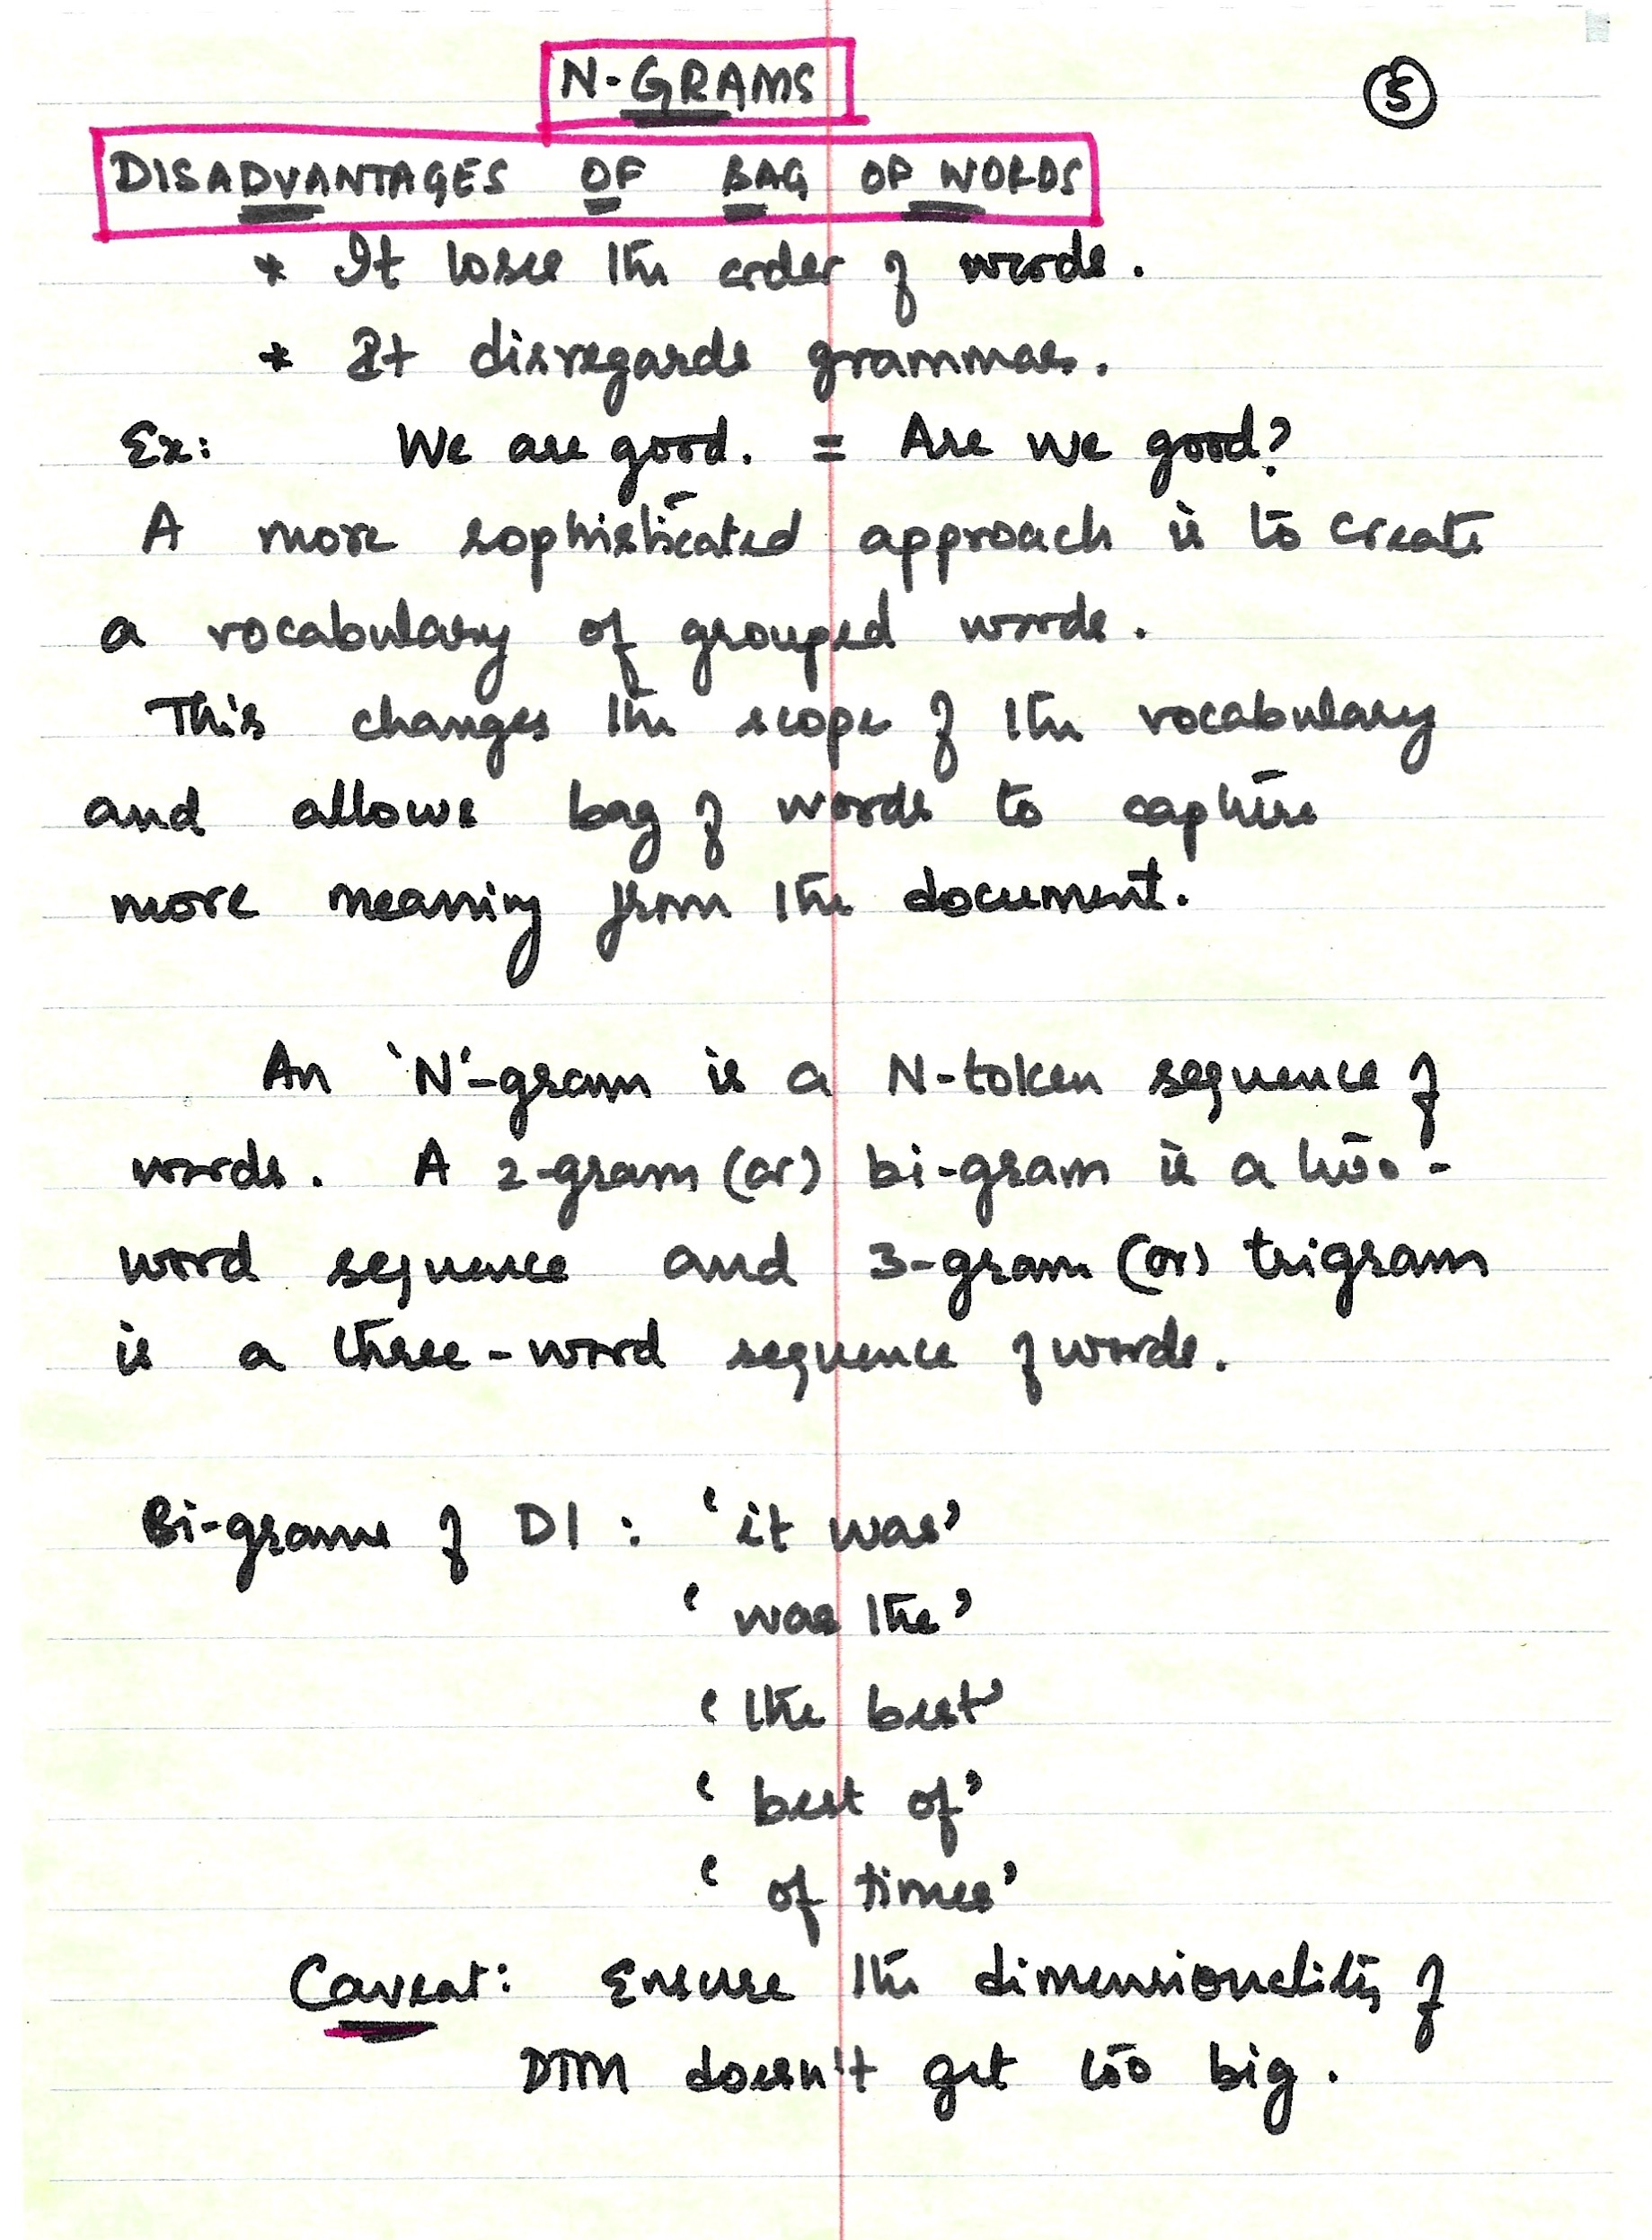 N-GRAMS
5
DISADVANTAGES OF BAG OF WORDS
* It loses the order of words.
* It disregards grammar.
Ex: We are good. = Are we good?
A more sophisticated approach is to create
a vocabulary of grouped words.
This changes the scope of the vocabulary
and allows bag of words to capture
more meaning from the document.
An 'N'-gram is a N-token sequence of
words. A 2-gram (or) bi-gram is a two-
word sequence and 3-gram (or) trigram
is a three-word sequence of words.
Bi-grams of D1 : 'it was'
'was the'
'the best'
'best of'
'of times'
Caveat: Ensure the dimensionality of
DTM doesn't get too big.